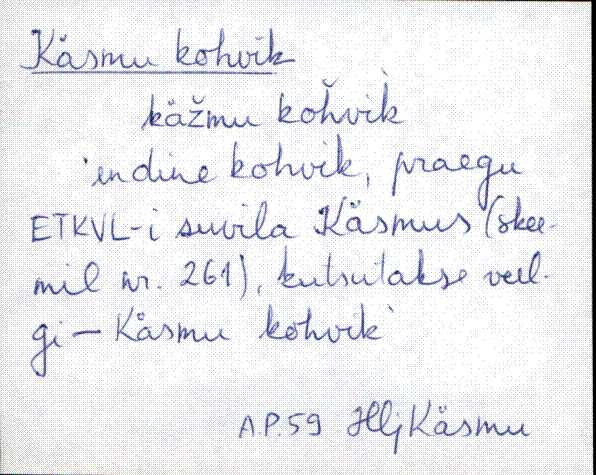 Käsmu kohvik
kä̆žmu kŏhvìk
'endine kohvik, praegu
ETKVL-i suvila Käsmus (skee-
mil nr. 261), kutsutakse veel-
gi – Käsmu kohvik'
A.P.59 HljKäsmu